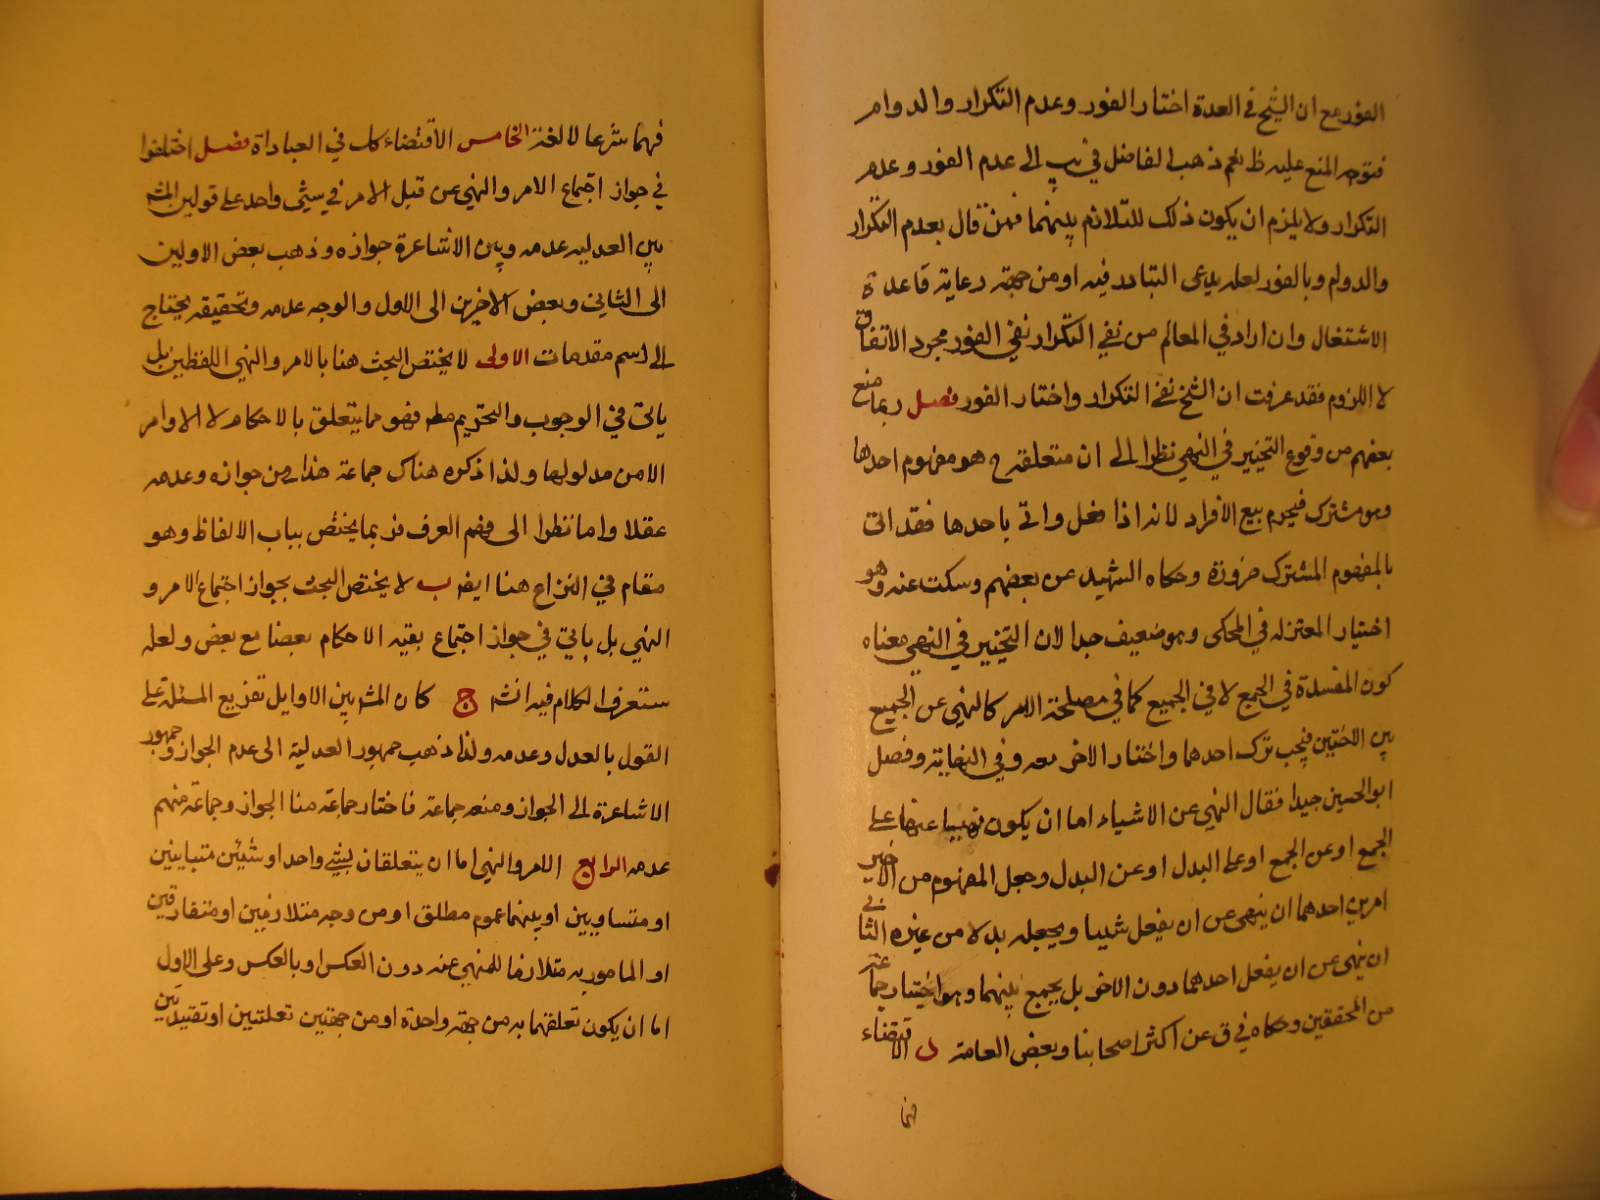 الفور مع ان الشيخ في العدة اختار الفور وعدم التكرار والدوام
فتوجه المنع عليه ظ نعم ذهب الفاضل في يب الى عدم الفور وعدم
التكرار ولا يلزم ان يكون ذلك للتلازم بينهما فمن قال بعدم التكرار
والدوام وبالفور لعله يدعى التبادر فيه او من جهة رعاية قاعدة
الاشتغال وان اراد في المعالم من نفي التكرار نفي الفور مجرد الاتفاق
لا اللزوم فقد عرفت ان الشيخ نفى التكرار واختار الفور فصل ربما منع
بعضهم من وقوع التخيير في النهي نظرا الى ان متعلقه ح هو مفهوم احدها
وهو مشترك فيحرم جميع الافراد لانه اذا فعل واتى باحدها فقد اتى
بالمفهوم المشترك ضرورة وحكاه الشهيد عن بعضهم وسكت عنه وهو
اختيار المعتزله في المحكى وهو ضعيف جدا لان التخيير في النهي معناه
كون المفسدة في الجمع لا في الجميع كما في مصلحة الامر كالنهي عن الجميع
بين الاختين فيجب ترك احدهما واختار الاخر معه وفي النهاية وفصل
ابو الحسين جيدا فقال النهي عن الاشياء اما ان يكون نهيا عنها على
الجمع او عن الجمع او على البدل او عن البدل وجعل المفهوم من الاخير
امرين احدهما ان ينهى عن ان يفعل شيئا ويجعله بدلا من غيره الثاني
ان ينهى عن ان يفعل احدهما دون الاخر بل يجمع بينهما وهو اختيار جماعة
من المحققين وحكاه في ق عن اكثر اصحابنا وبعض العامة الاقتضاء
فهما شرعا لا لغة الخامس الاقتضاء كك في العبادات فصل اختلفوا
في جواز اجتماع الامر والنهي من قبل الامر في شيئ واحد على قولين المش
بين العدليه عدمه وبين الاشاعرة جوازه وذهب بعض الاولين
الى الثاني وبعض الاخرين الى الاول والوجه عدمه وتحقيقه يحتاج
الى رسم مقدمات الاولى لا يختص البحث هنا بالامر والنهي اللفظين بل
ياتى في الوجوب والتحريم مط فهو مما يتعلق بالاحكام لا الاوامر
الا من مدلولها ولذا ذكره هناك جماعة هذا من جوازه وعدمه
عقلا واما نظرا الى فهم العرف فربما يختص بباب الالفاظ وهو
مقام في النزاع هنا ايضا ب لا يختص البحث بجواز اجتماع الامر و
النهي بل ياتى في جواز اجتماع بقيه الاحكام بعضا مع بعض ولعله
ستعرف الكلام فيه انش ج كان المش بين الاوايل تفريع المسئلة على
القول بالعدل وعدمه ولذا ذهب جمهور العدلية الى عدم الجواز وجمهور
الاشاعرة الى الجواز ومنعه جماعة فاختار جماعة منا الجواز وجماعة منهم
عدمه الرابع الامر والنهي اما ان يتعلقان بشيء واحد او شيئين متباينين
او متساويين او بينهما عموم مطلق او من وجه متلازمين او متفارقين
او المامور به متلازما للمنهي عنه دون العكس او بالعكس وعلى الاول
اما ان يكون تعلقهما به من جهة واحدة او من جهتين تعليلتين او تقييديتين